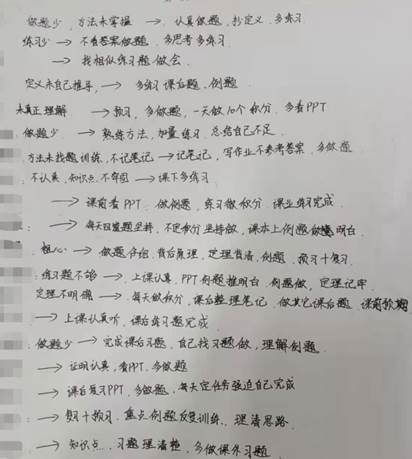 做题少,方法未掌握 → 认真做题,抄定义,多练习
练习少 → 不看答案做题,多思考多练习
→ 找相似练习题做会
定义未自己推导, → 多练课后题、例题
未真正理解 → 预习,多做题,一天做10个积分,多看PPT
做题少 → 熟练方法,加量练习,总结自己不足
方法未找题训练,不记笔记 → 记笔记,写作业不参考答案,多做题
不认真,知识点不牢固 → 课下多练习
→ 课前看PPT,做例题,练习做积分,课上练习完成
→ 每天四道题坚持,不定积分坚持做,课本上例题做明白
粗心 → 做题仔细,背后原理,定理背清,例题,预习+复习
练习题不够 → 上课认真,PPT例题推明白,例题做,定理记牢
定理不明确 → 每天做积分,课后整理笔记,做其它课后题,课前预习
→ 上课认真听,课后练习题完成
做题少 → 完成课后习题,自己找习题做,理解例题
→ 证明认真,看PPT,多做题
→ 课后复习PPT,多做题,每天定任务强迫自己完成
→ 复习+预习,重点例题反复训练,理清思路
→ 知识点,习题理清楚,多做课外习题